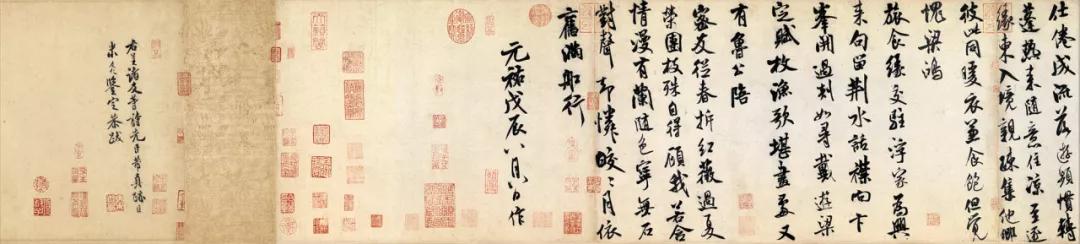 仕倦成流落遊頻慣轉
蓬熱来隨意住涼至逐
緣東入境親疎集他鄉
彼此同暖衣兼食飽但覺
愧梁鴻
旅食緣交駐浮家為興
来句留荆水話襟向卞
峯開過剡如尋戴遊梁
定賦枚漁歌堪畫處又
有魯公陪
密友從春拆紅薇過夏
榮團枝殊自得顧我若含
情漫有蘭隨色寧無石
對聲却憐皎〻月依
舊滿船行
元祐戊辰八月八日作
右呈諸友等詩先臣芾真蹟臣
米友仁鑒定恭跋